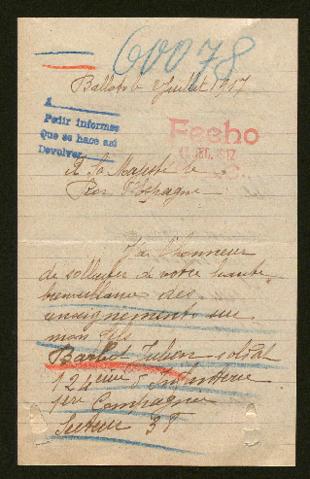 60078
Ballots le 2 Juillet 1917
A
Pedir informes
Que se hace así
Devolver
Fecho
DIC. 1917
A Sa Majesté le
Roi d'Espagne
J'ai l'honneur
de solliciter de votre haute
bienveillance des
renseignements sur
mon fils
Barbot Julien soldat
124eme d'Infanterie
1ere Compagnie
Secteur 38